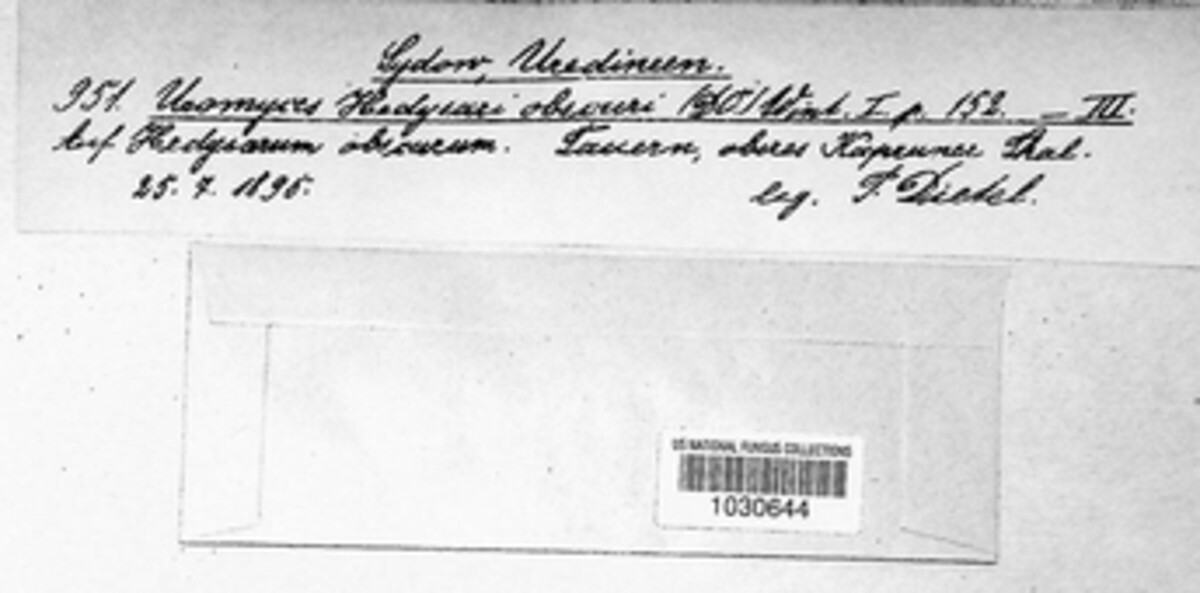 Sydow, Uredineen.
951. Uromyces Hedysari obscuri (DC) Wint. I. p. 152. — III.
Auf Hedysarum obscurum. Tauern, oberes Kapruner Thal.
25. 7. 1895. leg. P. Dietel.
US NATIONAL FUNGUS COLLECTIONS
1030644